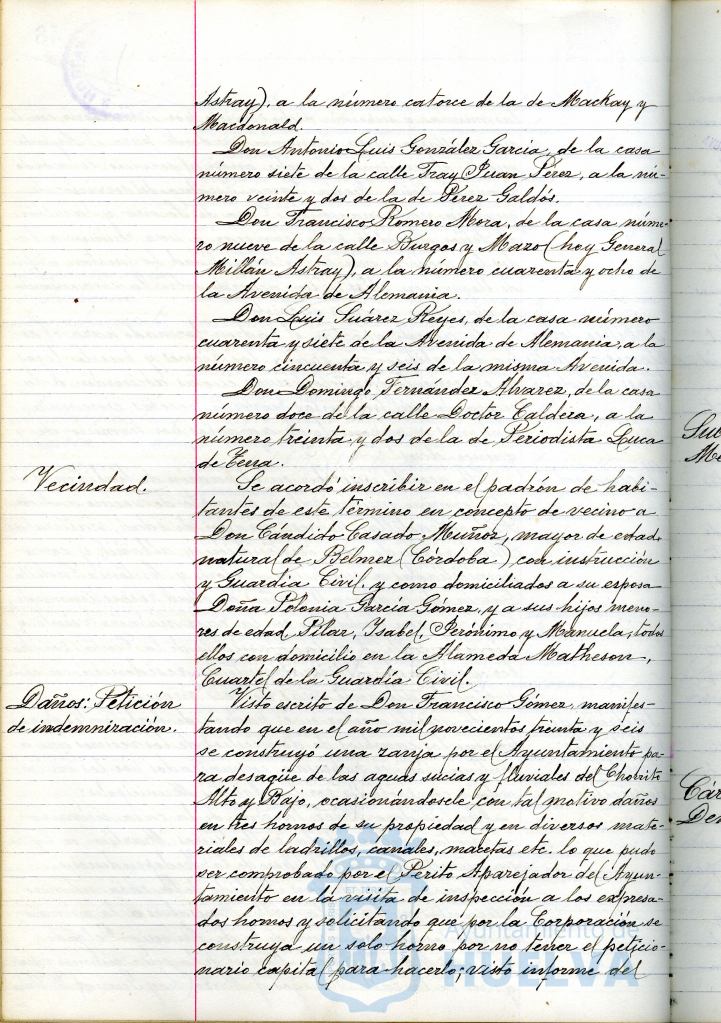 Astray), a la número catorce de la de Mackay y
Macdonald.
Don Antonio Luis González García, de la casa
número siete de la calle Fray Juan Pérez, a la nú-
mero veinte y dos de la de Pérez Galdós.
Don Francisco Romero Mora, de la casa núme-
ro nueve de la calle Burgos y Mazo (hoy General
Millán Astray), a la número cuarenta y ocho de
la Avenida de Alemania.
Don Luis Suárez Reyes, de la casa número
cuarenta y siete de la Avenida de Alemania, a la
número cincuenta y seis de la misma Avenida.
Don Domingo Fernández Alvarez, de la casa
número doce de la calle Doctor Caldera, a la
número treinta y dos de la de Periodista Luca
de Tena.
Vecindad.
Se acordó inscribir en el padrón de habi-
tantes de este término en concepto de vecino a
Don Cándido Casado Muñoz, mayor de edad,
natural de Belmez (Córdoba) con instrucción
y Guardia Civil, y como domiciliados a su esposa
Doña Polonia García Gómez, y a sus hijos meno-
res de edad Pilar, Isabel, Jerónimo y Manuela, todos
ellos con domicilio en la Alameda Matheson,
Cuartel de la Guardia Civil.
Daños: Petición
de indemnización.
Visto escrito de Don Francisco Gómez, manifes-
tando que en el año mil novecientos treinta y seis
se construyó una zanja por el Ayuntamiento pa-
ra desagüe de las aguas sucias y fluviales del Chorrito
Alto y Bajo, ocasionándosele con tal motivo daños
en tres hornos de su propiedad y en diversos mate-
riales de ladrillos, canales, macetas etc. lo que pudo
ser comprobado por el Perito Aparejador del Ayun-
tamiento en la visita de inspección a los expresa-
dos hornos y solicitando que por la Corporación se
construya un solo horno por no tener el peticio-
nario capital para hacerlo; visto informe del
Ayuntamiento de
HUELVA